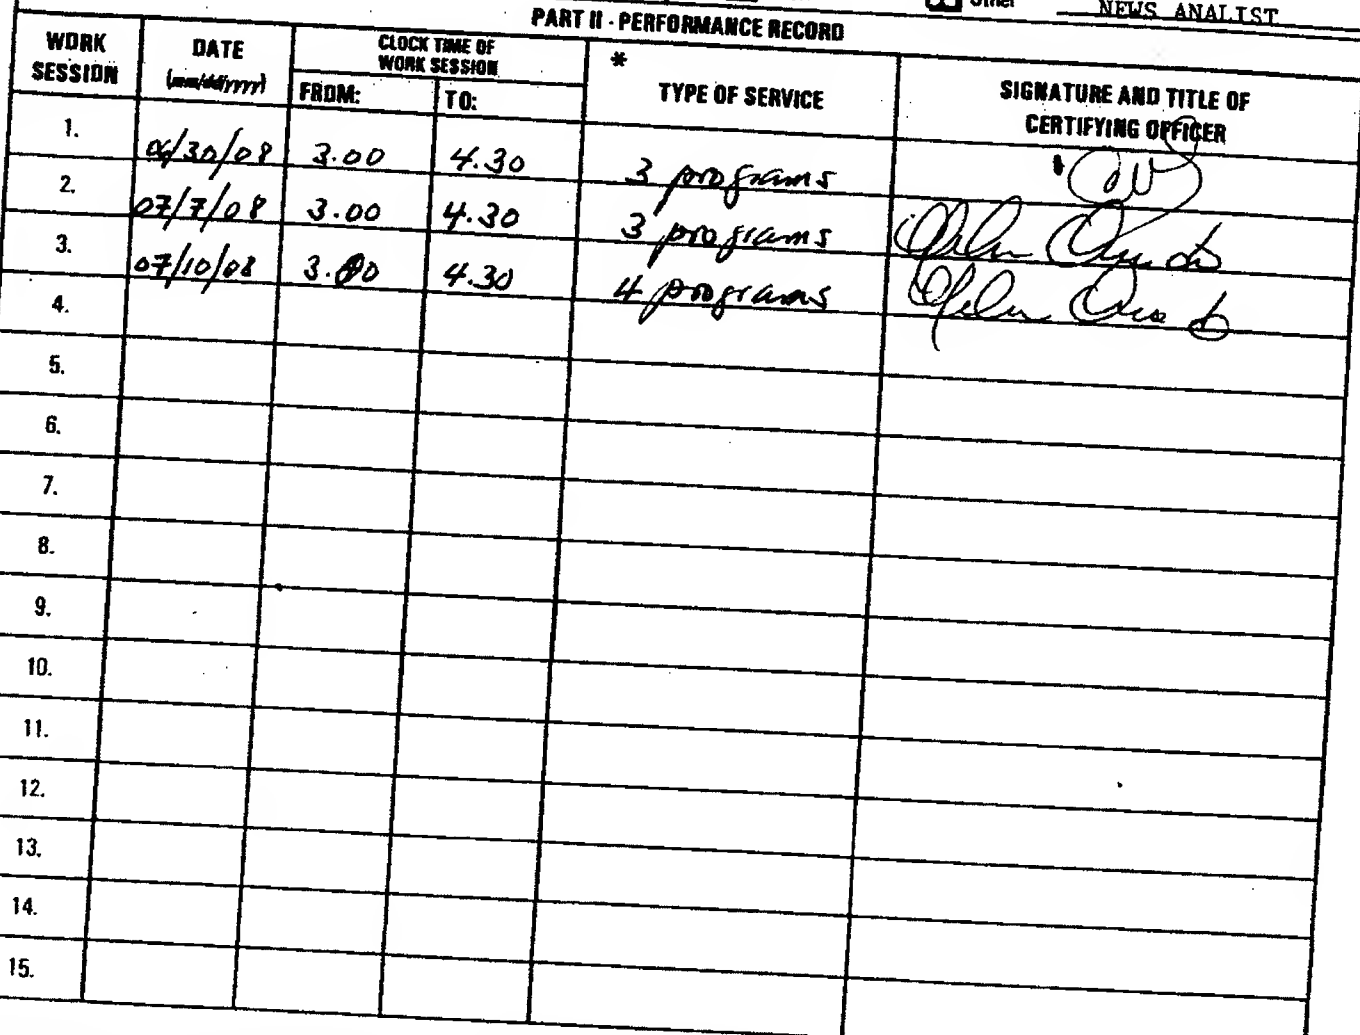 Other NEWS ANALIST
PART II - PERFORMANCE RECORD
WORK SESSION DATE (mm/dd/yyyy) CLOCK TIME OF WORK SESSION FROM: TO: * TYPE OF SERVICE SIGNATURE AND TITLE OF CERTIFYING OFFICER
1. 06/30/08 3.00 4.30 3 programs
2. 07/7/08 3.00 4.30 3 programs
3. 07/10/08 3.00 4.30 4 programs
4.
5.
6.
7.
8.
9.
10.
11.
12.
13.
14.
15.